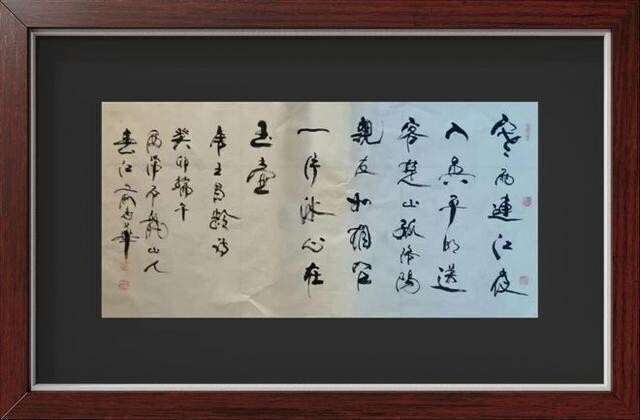 寒雨連江夜
入吳平明送
客楚山孤洛陽
親友如相問
一片冰心在
玉壺
王昌齡詩
癸卯端午
山人
春江華